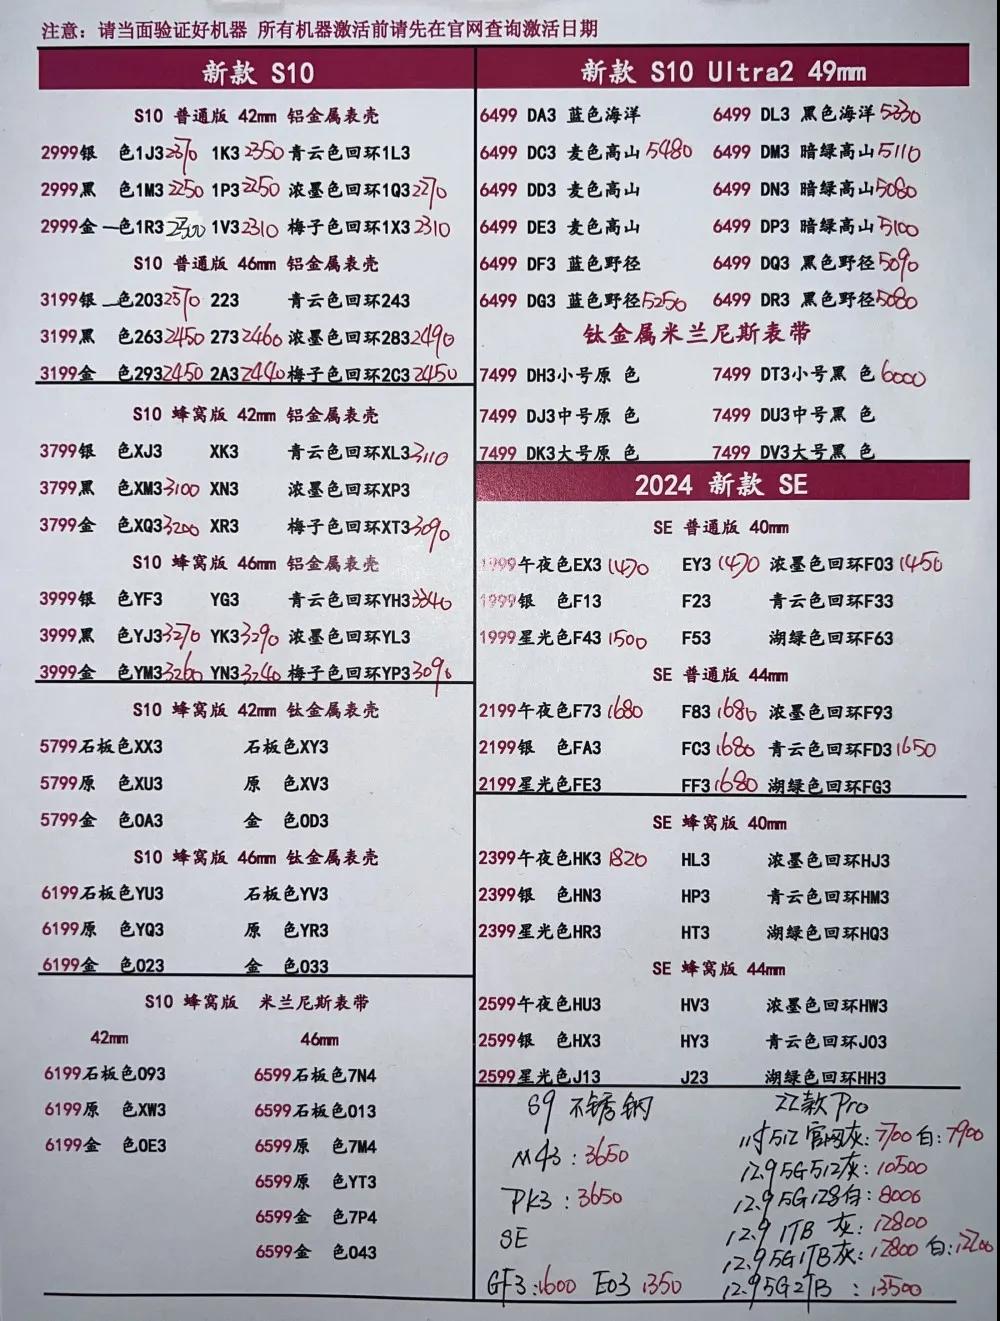 注意：请当面验证好机器 所有机器激活前请先在官网查询激活日期
新款 S10
S10 普通版 42mm 铝金属表壳
2999银 色1J3 2370 1K3 2350 青云色回环1L3
2999黑 色1M3 2250 1P3 2250 浓墨色回环1Q3 2270
2999金 色1R3 2300 1V3 2310 梅子色回环1X3 2310
S10 普通版 46mm 铝金属表壳
3199银 色203 2570 223 青云色回环243
3199黑 色263 2450 273 2460 浓墨色回环283 2490
3199金 色293 2450 2A3 2440 梅子色回环2C3 2450
S10 蜂窝版 42mm 铝金属表壳
3799银 色XJ3 XK3 青云色回环XL3 3110
3799黑 色XM3 3100 XN3 浓墨色回环XP3
3799金 色XQ3 3200 XR3 梅子色回环XT3 3090
S10 蜂窝版 46mm 铝金属表壳
3999银 色YF3 YG3 青云色回环YH3 3340
3999黑 色YJ3 3270 YK3 3290 浓墨色回环YL3
3999金 色YM3 3260 YN3 3240 梅子色回环YP3 3090
S10 蜂窝版 42mm 钛金属表壳
5799石板色XX3 石板色XY3
5799原 色XU3 原 色XV3
5799金 色0A3 金 色0D3
S10 蜂窝版 46mm 钛金属表壳
6199石板色YU3 石板色YV3
6199原 色YQ3 原 色YR3
6199金 色023 金 色033
S10 蜂窝版 米兰尼斯表带
42mm 46mm
6199石板色093 6599石板色7N4
6199原 色XW3 6599石板色013
6199金 色0E3 6599原 色7M4
6599原 色YT3
6599金 色7P4
6599金 色043
新款 S10 Ultra2 49mm
6499 DA3 蓝色海洋 6499 DL3 黑色海洋 5330
6499 DC3 麦色高山 5480 6499 DM3 暗绿高山 5110
6499 DD3 麦色高山 6499 DN3 暗绿高山 5080
6499 DE3 麦色高山 6499 DP3 暗绿高山 5100
6499 DF3 蓝色野径 6499 DQ3 黑色野径 5090
6499 DG3 蓝色野径 5250 6499 DR3 黑色野径 5080
钛金属米兰尼斯表带
7499 DH3小号原 色 7499 DT3小号黑 色 6000
7499 DJ3中号原 色 7499 DU3中号黑 色
7499 DK3大号原 色 7499 DV3大号黑 色
2024 新款 SE
SE 普通版 40mm
1999午夜色EX3 1470 EY3 1470 浓墨色回环F03 1450
1999银 色F13 F23 青云色回环F33
1999星光色F43 1500 F53 湖绿色回环F63
SE 普通版 44mm
2199午夜色F73 1680 F83 1680 浓墨色回环F93
2199银 色FA3 FC3 1680 青云色回环FD3 1650
2199星光色FE3 FF3 1680 湖绿色回环FG3
SE 蜂窝版 40mm
2399午夜色HK3 1820 HL3 浓墨色回环HJ3
2399银 色HN3 HP3 青云色回环HM3
2399星光色HR3 HT3 湖绿色回环HQ3
SE 蜂窝版 44mm
2599午夜色HU3 HV3 浓墨色回环HW3
2599银 色HX3 HY3 青云色回环J03
2599星光色J13 J23 湖绿色回环HH3
S9 不锈钢
M43：3650
PK3：3650
SE
GF3：1600 E03 1350
22款Pro
11寸512 官网灰：7700 白：7900
12.9 5G 512灰：10500
12.9 5G 128白：8000
12.9 1TB 灰：12800
12.9 5G 1TB灰：12800 白：12200
12.9 5G 2TB ：13500